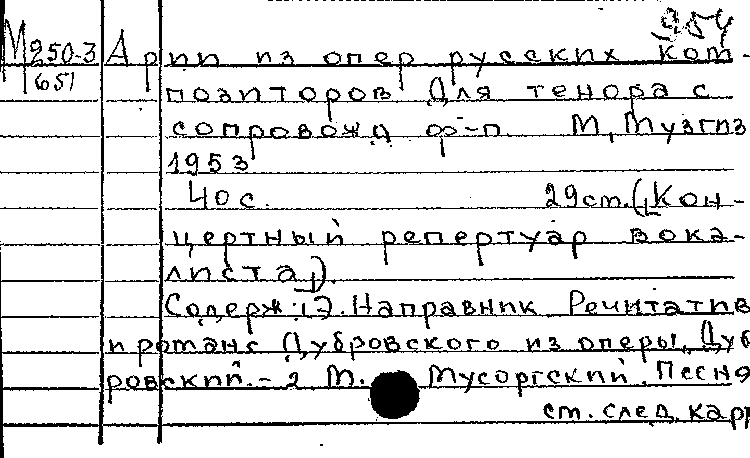 954
М250-3 Арии из опер русских ком-
651 позиторов Для тенора с
сопровожд ф-п. М, Музгиз
1953
40 с. 29 ст. („Кон-
цертный репертуар вока-
листа").
Содерж: 1) Э. Направник Речитатив
и романс Дубровского из оперы „Дуб
ровский. - 2 М. Мусоргский. Песня
см. след. кар